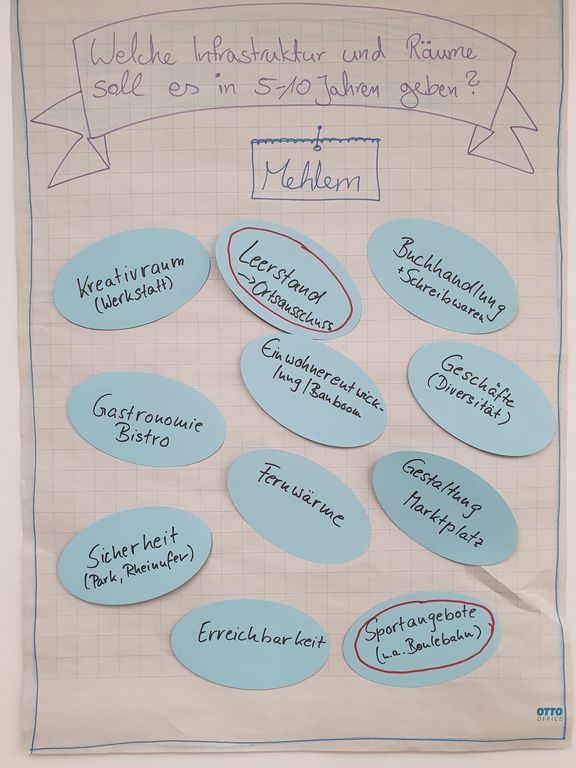 Welche Infrastruktur und Räume
soll es in 5-10 Jahren geben?
Mehlem
Kreativraum
(Werkstatt)
Leerstand
→Ortsausschuss
Buchhandlung
+Schreibwaren
Einwohnerentwick-
lung/Bauboom
Geschäfte
(Diversität)
Gastronomie
Bistro
Fernwärme
Gestaltung
Marktplatz
Sicherheit
(Park, Rheinufer)
Erreichbarkeit
Sportangebote
(u.a. Boulebahn)
OTTO
OFFICE